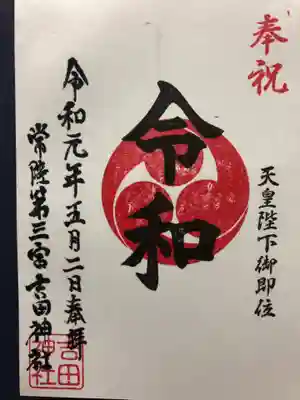 奉祝
天皇陛下御即位
令和
令和元年五月二日奉拝
常陸第三宮吉田神社
吉田
神社